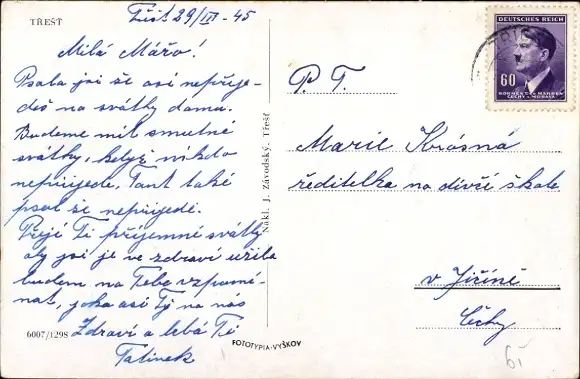 TŘEŠŤ
Třešť 29/III - 45
Milá Mářo!
Psala jsi že asi nepřije-
deš na svátky domů.
Budeme mít smutné
svátky, když nikdo
nepřijede. Tant také
psal že nepřijede.
Přeji Ti příjemné svátky
aby jsi je ve zdraví užila
budem na Tebe vzpomí-
nat, jako asi Ty na nás
Zdraví a líbá Tě
Tatínek
6007/1298
Nákl. J. Závodský, Třešť
FOTOTYPIA-VYŠKOV
DEUTSCHES REICH
60
BÖHMEN U. MÄHREN
ČECHY A MORAVA
P. T.
Marie Krásná
ředitelka na dívčí škole
v Jičíně
Čechy